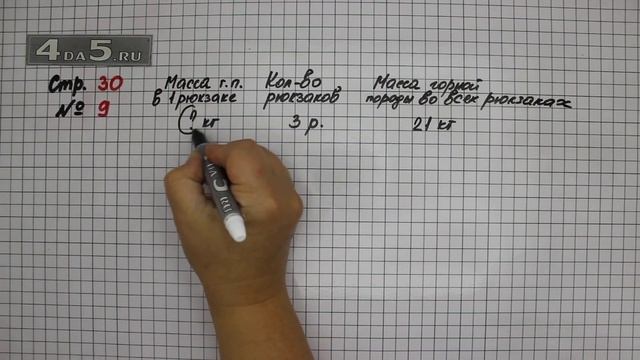 4DA5.RU
Стр. 30
№ 9
Масса г.п. в 1 рюкзаке
Кол-во рюкзаков
Масса горной породы во всех рюкзаках
? кг
3 р.
21 кг
4DA5.RU